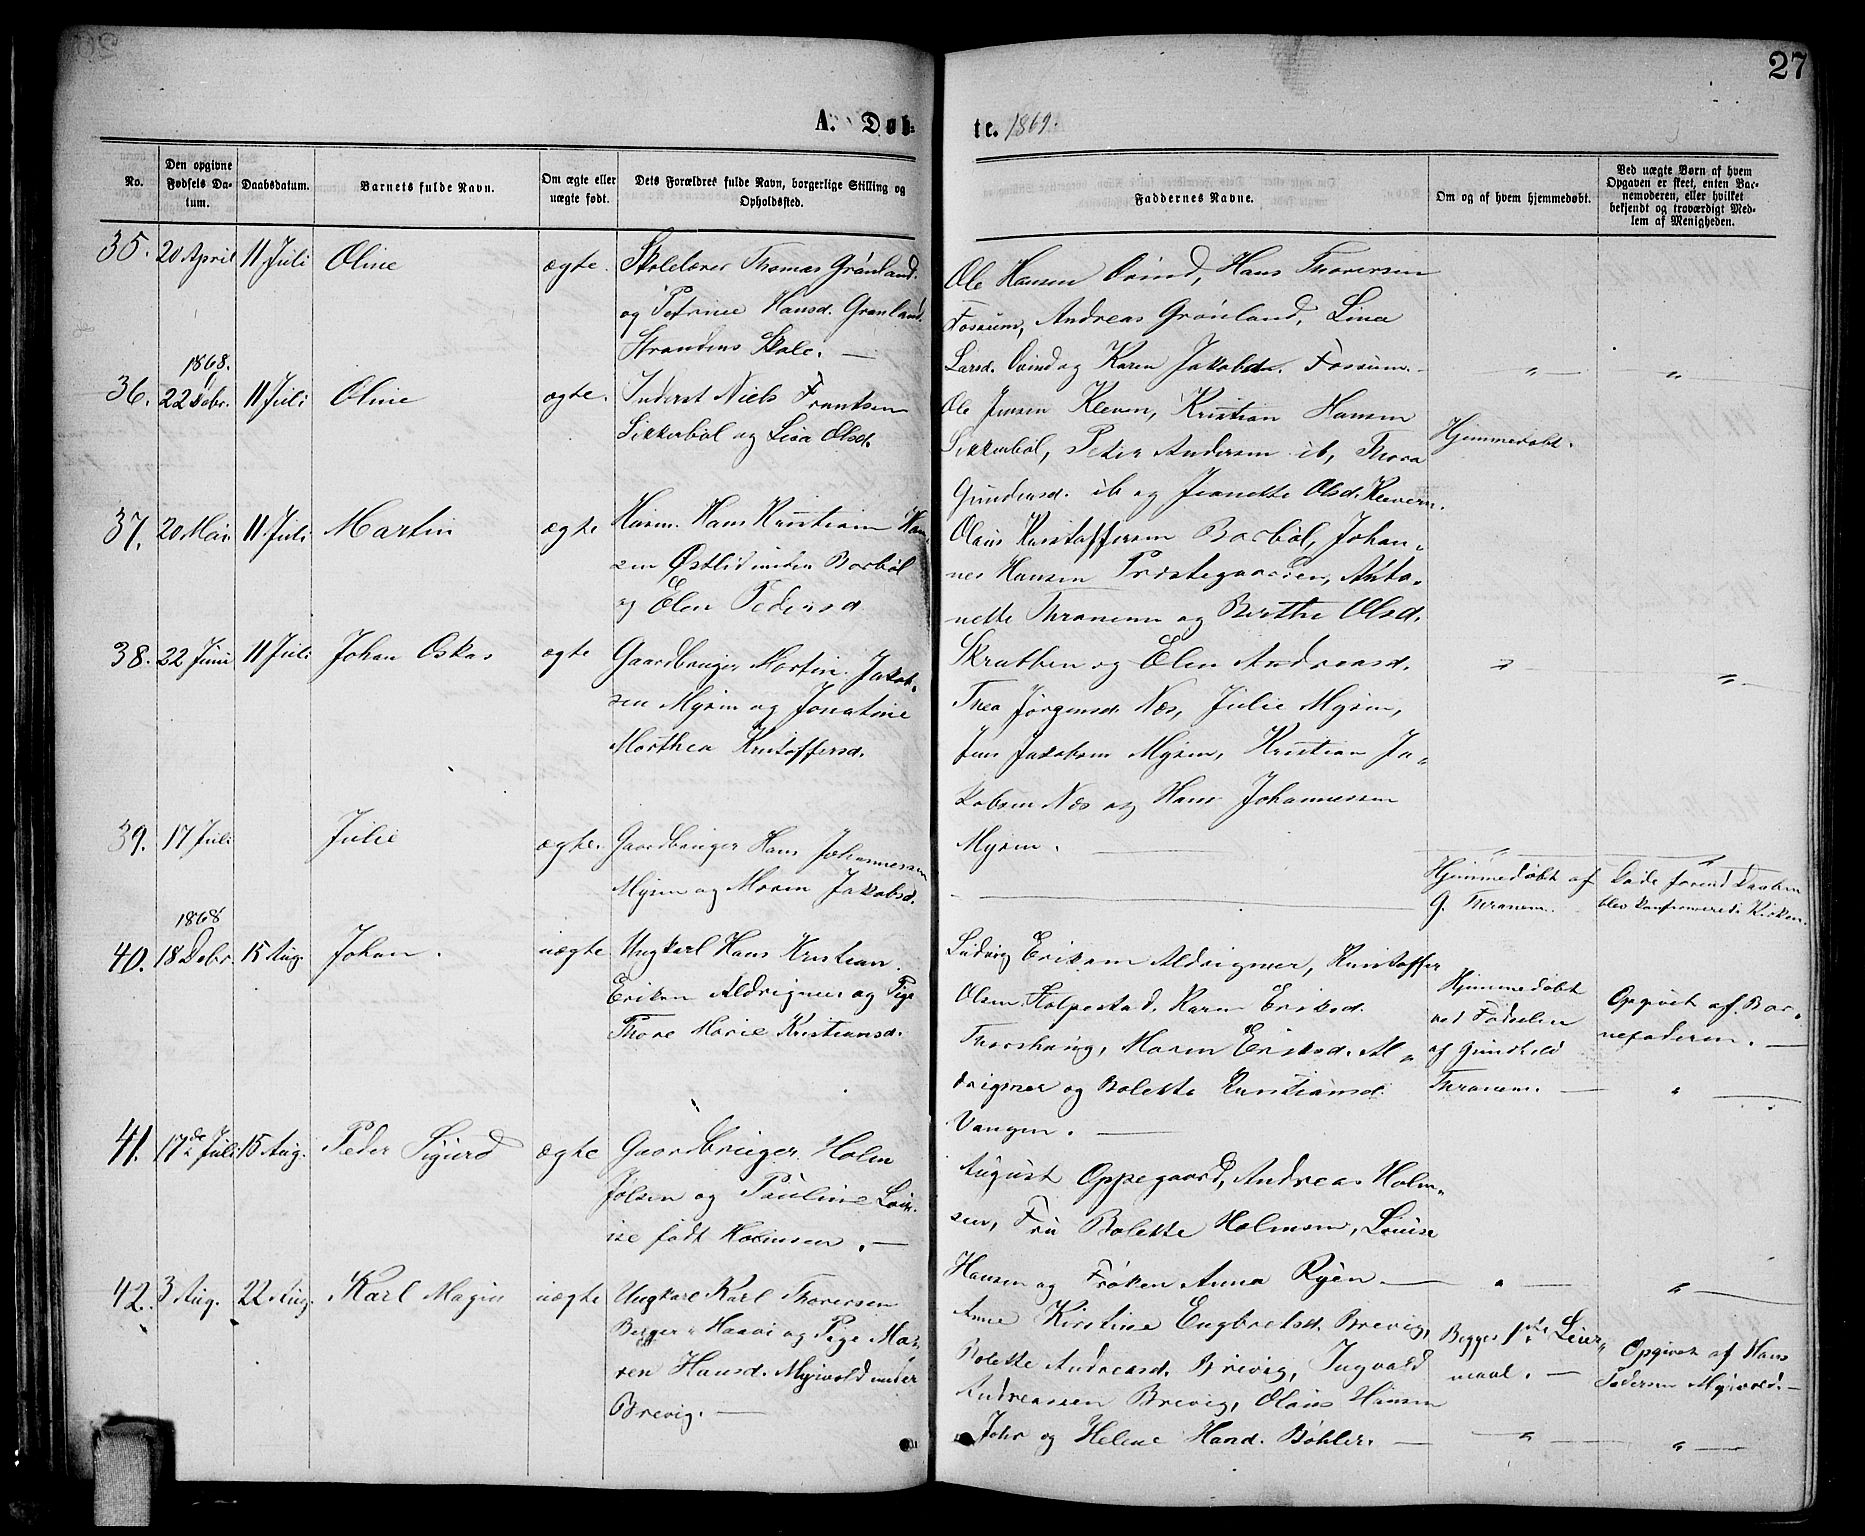 27
A. Døb-
te. 1869.
No.
Den opgivne Fødsels Datum.
Daabsdatum.
Barnets fulde Navn.
Om ægte eller uægte født.
Dets Forældres fulde Navn, borgerlige Stilling og Opholdssted.
Faddernes Navne.
Om og af hvem hjemmedøbt.
Ved uægte Børn af hvem Opgaven er skeet, enten Barnemoderen, eller hvilket bekjendt og troværdigt Medlem af Menigheden.
35. 20 April 11 Juli Oline ægte. Skolelærer Thomas Grønland
og Petrine Hansd. Grønland
Strandens Skole. —
Ole Hansen Øvind, Hans Thoresen
Fossum, Andreas Grønland, Lina
Larsd. Øvind og Karen Jakobd. Fossum. — " — " —
1868.
36. 22 Debr. 11 Juli Oline ægte. Inderst Niels Frantsen
Sikkerbøl og Lisa Olsd.
Ole Jensen Kleven, Kristian Hansen
Sikkerbøl, Peter Andersen ib, Thora
Gundersd. ib og Jeanette Olsd. Kleven.
Hjemmedøbt.
37. 20 Mai 11 Juli Martin ægte Husm. Hans Kristian Han-
sen Østlid under Børbøl
og Elen Pedersd
Olaus Kristoffersen Børbøl, Johan-
nes Hansen Præstegaarden, Anto-
nette Thranem og Berthe Olsd.
Skrabben og Elen Andreasd. " — " —
38. 22 Juni 11 Juli Johan Oskar ægte Gaardbruger Martin Jakob-
sen Mysen og Jonatine
Marthea Kristoffersd.
Thea Jørgensd. Næs, Julie Mysen,
Jens Jakobsen Mysen, Kristian Ja-
kobsen Næs og Hans Johannessen
Mysen. — " — " —
39. 17 Juli Julie ægte. Gaardbruger Hans Johannessen
Mysen og Maren Jakobsd.
—
Hjemmedøbt af
G. Thranem.
Døde forend Daaben
blev konfirmeret i Kirken.
1868
40. 18 Debr. 15 Aug. Johan. uægte Ungkarl Hans Kristian
Eriksen Aldrigmer og Pige
Thore Marie Kristiansd.
Ludvig Eriksen Aldrigmer, Kristoffer
Olsen Stolpestad, Karen Eriksd.
Thorshaug, Maren Eriksd. Al-
drigmer og Bolette Kristiansd.
Vangen. —
Hjemmedøbt
ved Fødselen
af Gundhild
Thranem. —
Opgivet af Bar-
nefaderen. —
" —
41. 17de Juli 15 Aug. Peder Sigurd ægte Gaardbruger Holm
Jølsen og Pauline Lou-
ise født Holmsen. —
August Oppegaard, Andreas Holm-
sen, Fru Bolette Holmsen, Louise
Hansen og Frøken Anna Ryen — " — " —
42. 3 Aug. 22 Aug. Karl Magin uægte Ungkarl Karl Thoresen
Berger Haavi og Pige Ma-
ren Hansd. Myrvold under
Brevig. —
Anne Kirstine Engbretsd. Brevig,
Bolette Andreasd. Brevig, Ingvald
Andreassen Brevig, Olaus Hansen
Johr og Helene Hansd. Bøhler. —
Begges 1ste Leier-
maal. —
" —
Opgivet af Hans
Pedersen Myrvold. —
" —